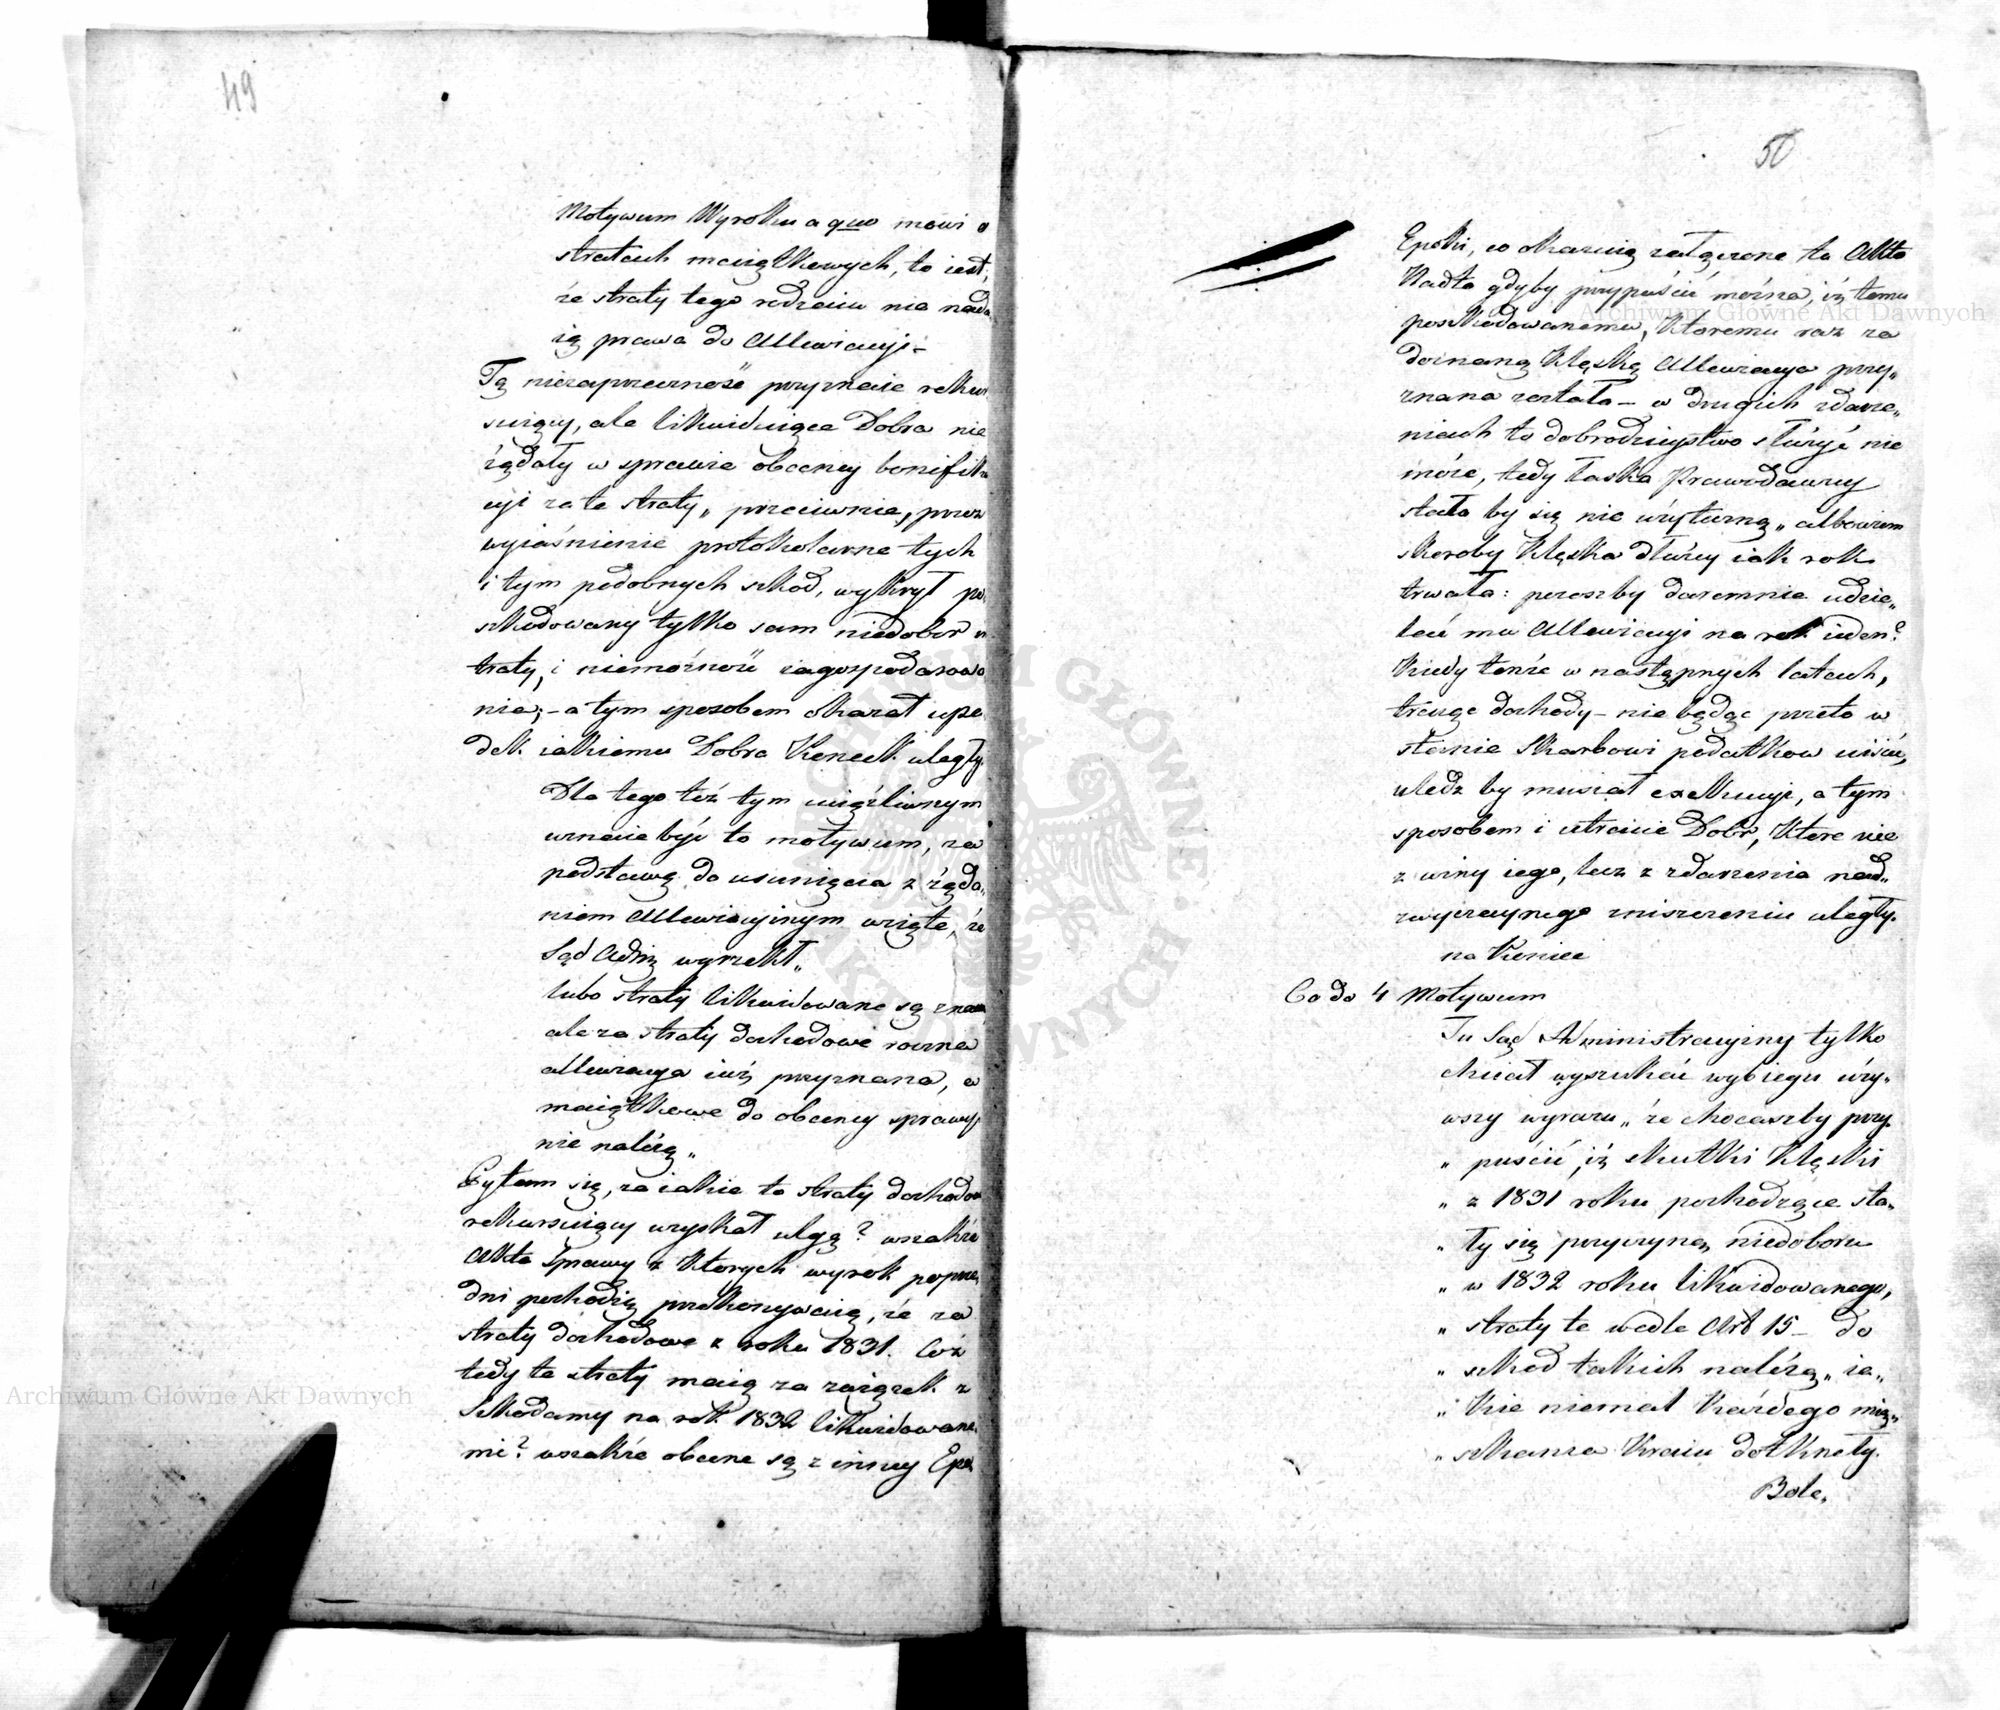 49
Motywum Wyroku a quo mowi o
stratach maiątkowych, to iest,
że straty tego rodzaiu nie nada
ią prawa do Allewiacyi –
Tą niezaprzeczność przyznaie rekur
suiący, ale likwiduiące Dobra nie
żądały w sprawie obecney bonifika
cyi za te straty„ przeciwnie, przez
wyiaśnienie protokolarne tych
i tym podobnych szkod, wykrył po
szkodowany tylko sam niedobor in
traty, i niemożność zagospodarowa
nia; – a tym sposobem okazał upa
dek iakiemu Dobra Koneck uległy.
Dla tego też tym uciążliwnym
uznaie być to motywum, za
podstawę do usunięcia z żąda„
niem Allewiacyinym wzięte, że
Sąd Adm wyrzekł„
lubo straty likwidowane są zna
ale za straty dochodowe rowna
allewiacya iuż przyznana, a
maiątkowe do obecney sprawy
nie należą„
Pytam się, za iakie to straty dochodow
rekursuiący uzyskał ulgę? wszakże
Akta Sprawy z ktorych wyrok poprze
dni pochodzi przekonywaią, że za
straty dochodowe z roku 1831. Coż
tedy te straty maią za związek z
Szkodami na rok 1832 likwidowane
mi? wszakże obecne są z inney Epo
50
Epoki, co okazuią załączone tu Akta
Nadto gdyby przypuścić można, iż temu
poszkodowanemu, ktoremu raz za
doznaną klęskę Allewiacya przy„
znana została – w drugich zdarze„
niach to dobrodzieystwo służyć nie
może, tedy łaska Prawodawcy
stała by się nie użyteczną„ albowiem
skoroby klęska dłużey iak rok
trwała: poco żby daremnie udzie„
lać mu Allewiacyi na rok ieden?
kiedy tenże w następnych latach,
tracąc dochody – nie będąc przeto w
stanie Skarbowi podatkow uiścić,
uledz by musiał exekucyi, a tym
sposobem i utracie Dobr, ktore nie
z winy iego, lecz z zdarzenia nad„
zwyczaynego zniszczeniu uległy.
na koniec
Co do 4 Motywum
Tu Sąd Administracyiny tylko
chciał wyszukać wybiegu uży„
wszy wyrazu„ że chociażby przy„
„ puścić, iż skutki klęski
„ z 1831 roku pochodzące sta„
„ ły się przyczyną niedoboru
„ w 1832 roku likwidowanego,
„ straty te wedle Art 15 – do
„ szkod takich należą„ ia„
„ kie niemal każdego mię„
„ szkańca Kraiu dotknęły.
Bole„
Archiwum Główne Akt Dawnych
Archiwum Główne Akt Dawnych
ARCHIWUM GŁÓWNE AKT DAWNYCH